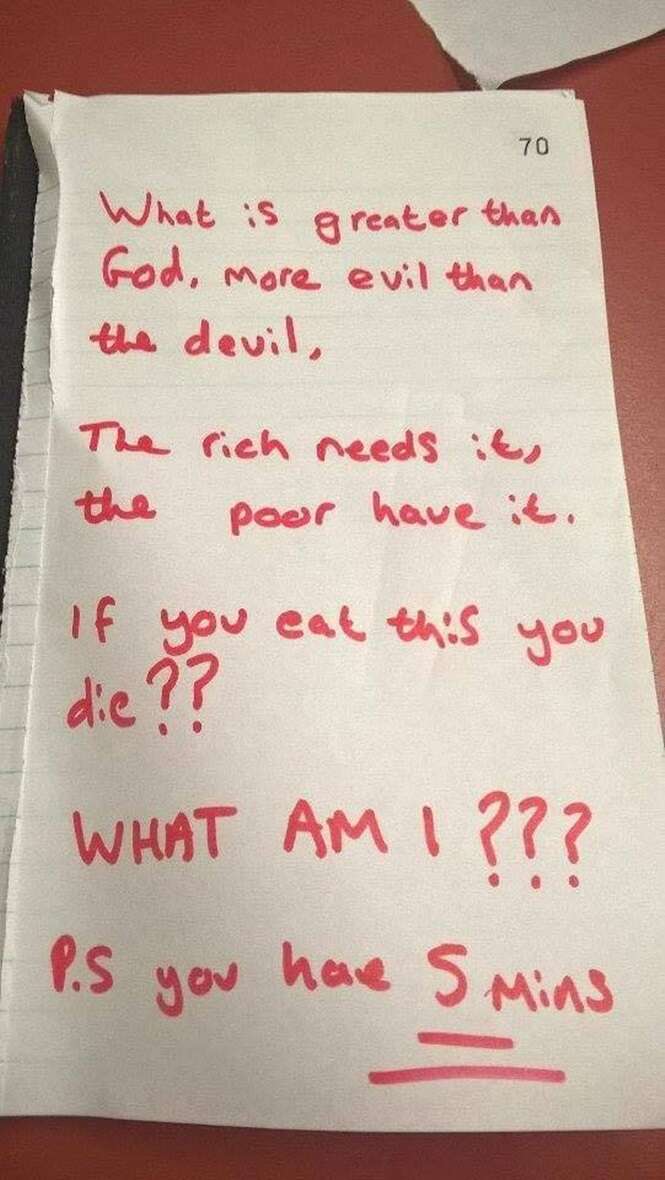 70
What is greater than
God, more evil than
the devil,
The rich needs it,
the poor have it.
If you eat this you
die??
WHAT AM I ???
P.S you have 5 Mins